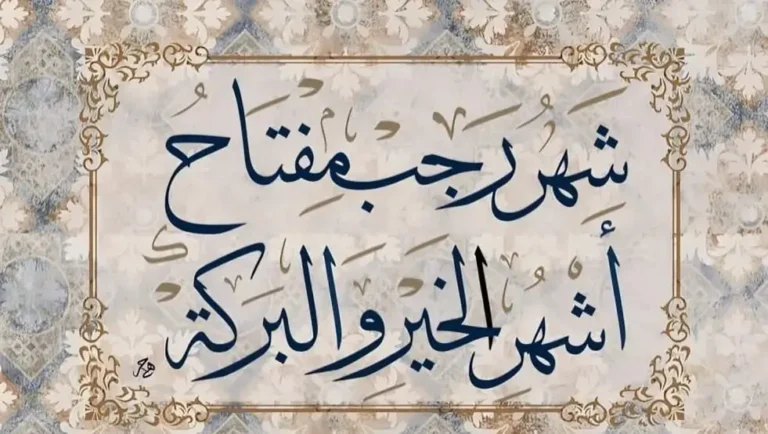 شَهْرُ رَجَبْ مِفْتَاحُ
أَشْهُرِ الْخَيْرِ وَالْبَرَكَةِ